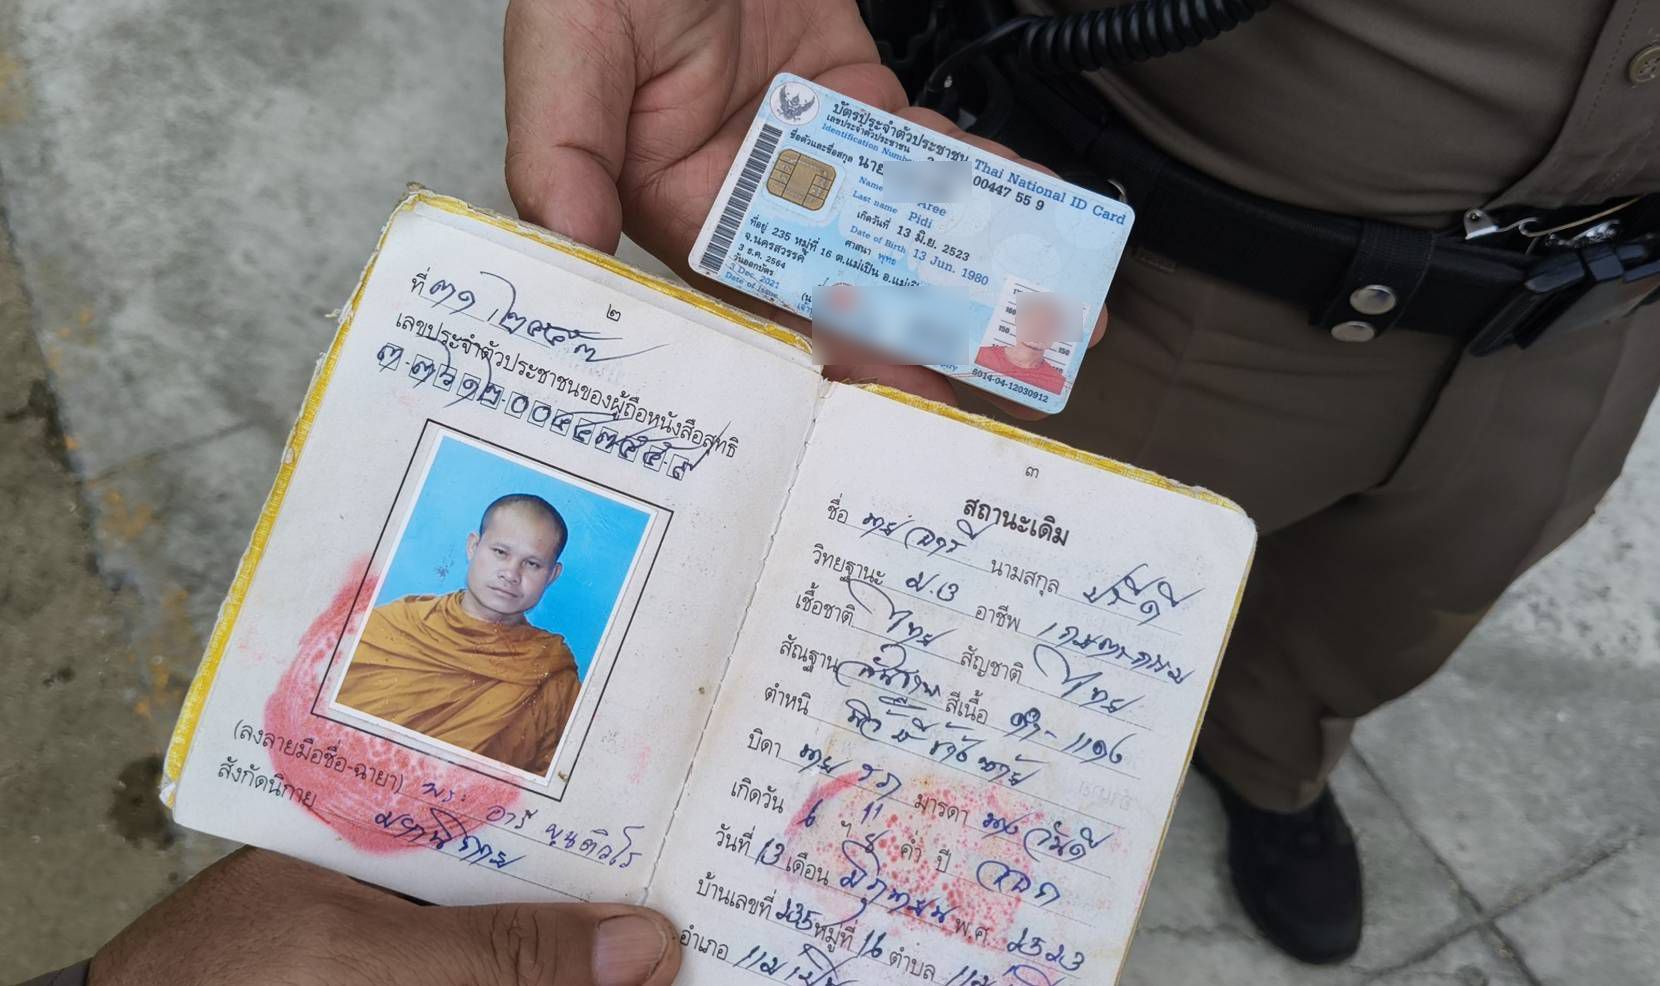 บัตรประจำตัวประชาชน Thai National ID Card
เลขประจำตัวประชาชน
Identification Number 00447 55 9
ชื่อตัวและชื่อสกุล นาย
Name Aree
Last name Pidi
เกิดวันที่ 13 มิ.ย. 2523
Date of Birth 13 Jun. 1980
ศาสนา พุทธ
ที่อยู่ 235 หมู่ที่ 16 ต.แม่เปิน อ.แม่เปิน
จ.นครสวรรค์
3 ธ.ค. 2564
วันออกบัตร
3 Dec. 2021
Date of Issue
6014-04-12030912
๒
ที่ ๓๑
เลขประจำตัวประชาชนของผู้ถือหนังสือสุทธิ
(ลงลายมือชื่อ-ฉายา) พระ อารี
สังกัดนิกาย มหานิกาย
๓
สถานะเดิม
ชื่อ นาย อารี นามสกุล
วิทยฐานะ ม.๖ อาชีพ เกษตรกรรม
เชื้อชาติ ไทย สัญชาติ ไทย
สัณฐาน สันทัด สีเนื้อ ดำ-แดง
ตำหนิ
บิดา นาย มารดา นาง
เกิดวัน ๖ ฯ ค่ำ ปี วอก
วันที่ 13 เดือน มิถุนายน พ.ศ. ๒๕๒๓
บ้านเลขที่ ๒35 หมู่ที่ 16 ตำบล
อำเภอ แม่เปิน